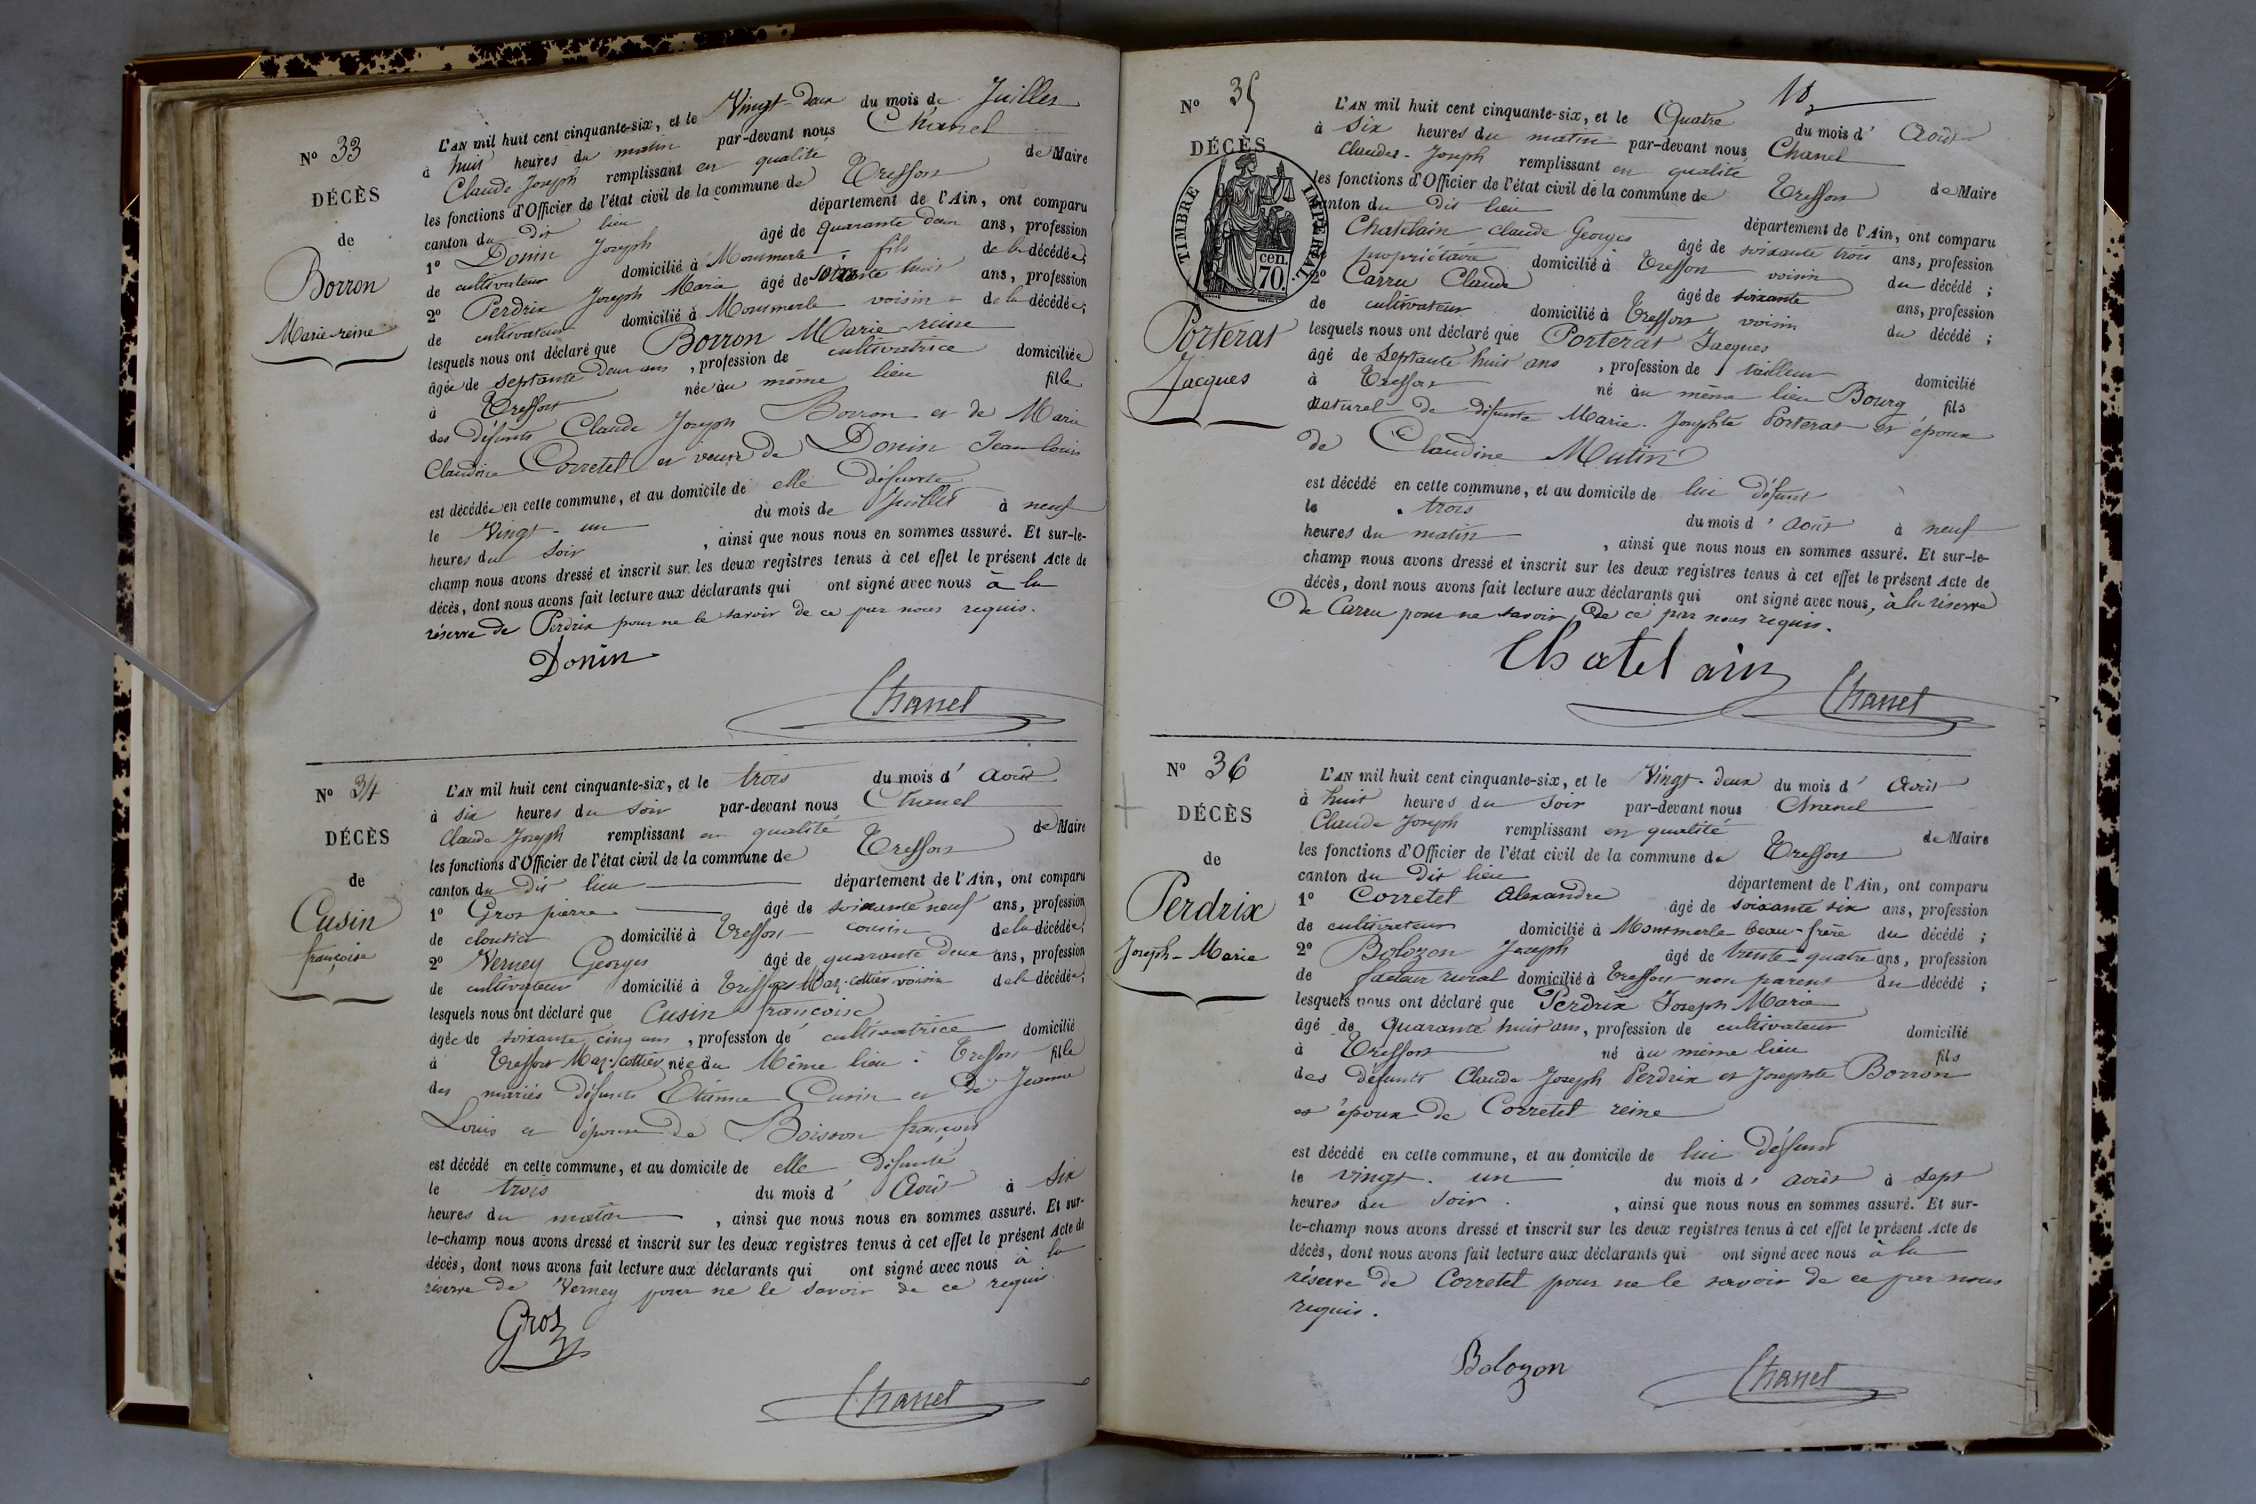 N° 33
DÉCÈS
de
Borron
Marie-reine
L'AN mil huit cent cinquante-six, et le Vingt-deux du mois de Juillet
à huit heures du matin par-devant nous Chanel
Claude Joseph remplissant en qualité de Maire
les fonctions d'Officier de l'état civil de la commune de Treffort
canton du dit lieu département de l'Ain, ont comparu
1° Donin Joseph âgé de quarante deux ans, profession
de cultivateur domicilié à Montmerle fils de la décédée;
2° Perdrix Joseph Marie âgé de soixante huit ans, profession
de cultivateur domicilié à Montmerle voisin de la décédée;
lesquels nous ont déclaré que Borron Marie-reine
âgée de septante deux ans, profession de cultivatrice domiciliée
à Treffort née au même lieu fille
des défunts Claude Joseph Borron et de Marie
Claudine Corretel et veuve de Donin Jean Louis
est décédée en cette commune, et au domicile de elle défunte
le Vingt-un du mois de Juillet à neuf
heures du soir, ainsi que nous nous en sommes assuré. Et sur-le-
champ nous avons dressé et inscrit sur les deux registres tenus à cet effet le présent Acte de
décès, dont nous avons fait lecture aux déclarants qui ont signé avec nous à la
réserve de Perdrix pour ne le savoir de ce par nous requis.
Donin
Chanel
N° 34
DÉCÈS
de
Cusin
françoise
L'AN mil huit cent cinquante-six, et le trois du mois d'Août
à six heures du soir par-devant nous Chanel
Claude Joseph remplissant en qualité de Maire
les fonctions d'Officier de l'état civil de la commune de Treffort
canton du dit lieu département de l'Ain, ont comparu
1° Gros pierre âgé de soixante neuf ans, profession
de cloutier domicilié à Treffort cousin de la décédée;
2° Verney Georges âgé de quarante deux ans, profession
de cultivateur domicilié à Treffort Mas-Cottier voisin de la décédée;
lesquels nous ont déclaré que Cusin françoise
âgée de soixante cinq ans, profession de cultivatrice domicilié
à Treffort Mas-Cottier née du Même lieu Treffort fille
des mariés défunts Etienne Cusin et de Jeanne
Louis et épouse de Boisson françois
est décédé en cette commune, et au domicile de elle défunte
le trois du mois d'Août à six
heures du matin, ainsi que nous nous en sommes assuré. Et sur-
le-champ nous avons dressé et inscrit sur les deux registres tenus à cet effet le présent Acte de
décès, dont nous avons fait lecture aux déclarants qui ont signé avec nous à la
réserve de Verney pour ne le savoir de ce requis.
Gros
Chanel
18
N° 35
DÉCÈS
TIMBRE IMPÉRIAL
70 cen.
Porterat
Jacques
L'AN mil huit cent cinquante-six, et le Quatre du mois d'Août
à six heures du matin par-devant nous Chanel
Claude-Joseph remplissant en qualité de Maire
les fonctions d'Officier de l'état civil de la commune de Treffort
canton du dit lieu département de l'Ain, ont comparu
Chatelain claude Georges âgé de soixante trois ans, profession
propriétaire domicilié à Treffort voisin du décédé;
2° Carru Claude âgé de soixante ans, profession
de cultivateur domicilié à Treffort voisin du décédé;
lesquels nous ont déclaré que Porterat Jacques
âgé de septante huit ans, profession de tailleur domicilié
à Treffort né au même lieu Bourg fils
naturel de défunte Marie-Josephte Porterat et époux
de Claudine Mutin
est décédé en cette commune, et au domicile de lui défunt
le trois du mois d'août à neuf
heures du matin, ainsi que nous nous en sommes assuré. Et sur-le-
champ nous avons dressé et inscrit sur les deux registres tenus à cet effet le présent Acte de
décès, dont nous avons fait lecture aux déclarants qui ont signé avec nous, à la réserve
de Carru pour ne savoir, de ce par nous requis.
Chatelain
Chanel
N° 36
DÉCÈS
de
Perdrix
Joseph-Marie
L'AN mil huit cent cinquante-six, et le Vingt-deux du mois d'Août
à huit heures du soir par-devant nous Chanel
Claude Joseph remplissant en qualité de Maire
les fonctions d'Officier de l'état civil de la commune de Treffort
canton du dit lieu département de l'Ain, ont comparu
1° Corretel Alexandre âgé de soixante six ans, profession
de cultivateur domicilié à Montmerle beau-frère du décédé;
2° Bolozon Joseph âgé de trente-quatre ans, profession
de facteur rural domicilié à Treffort non parent du décédé;
lesquels nous ont déclaré que Perdrix Joseph Marie
âgé de Quarante huit ans, profession de cultivateur domicilié
à Treffort né au même lieu fils
des défunts Claude Joseph Perdrix et Josephte Borron
et époux de Corretel reine
est décédé en cette commune, et au domicile de lui défunt
le vingt-un du mois d'août à sept
heures du soir, ainsi que nous nous en sommes assuré. Et sur-
le-champ nous avons dressé et inscrit sur les deux registres tenus à cet effet le présent Acte de
décès, dont nous avons fait lecture aux déclarants qui ont signé avec nous à la
réserve de Corretel pour ne le savoir de ce par nous
requis.
Bolozon
Chanel